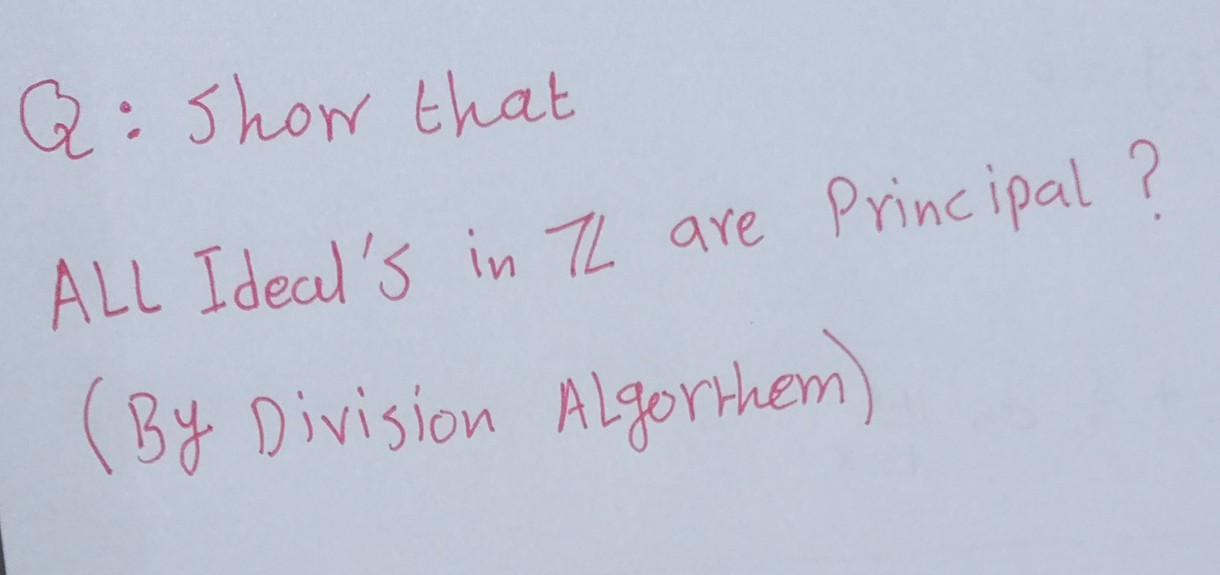 Q: Show that
ALL Ideal's in ℤ are Principal ?
(By Division ALgorthem)